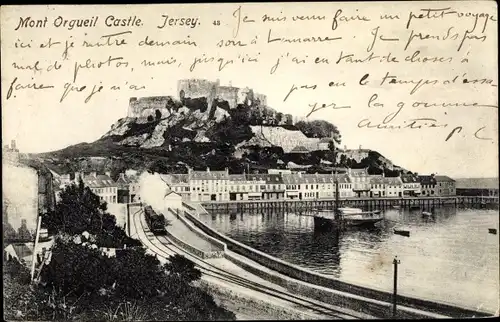 Mont Orgueil Castle. Jersey. 48
Je suis venu faire un petit voyage
ici et je rentre demain soir à
Je perds pas
mal de photos mais, j'ai en tant de choses à
faire que je n'ai pas en le temps d'
la gomme
amitiés